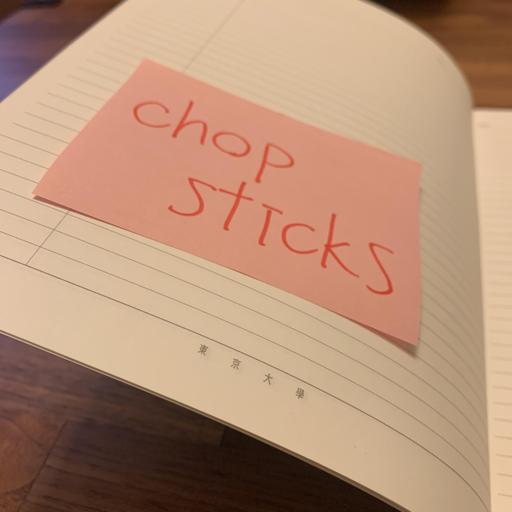 chop
sticks
東京大學